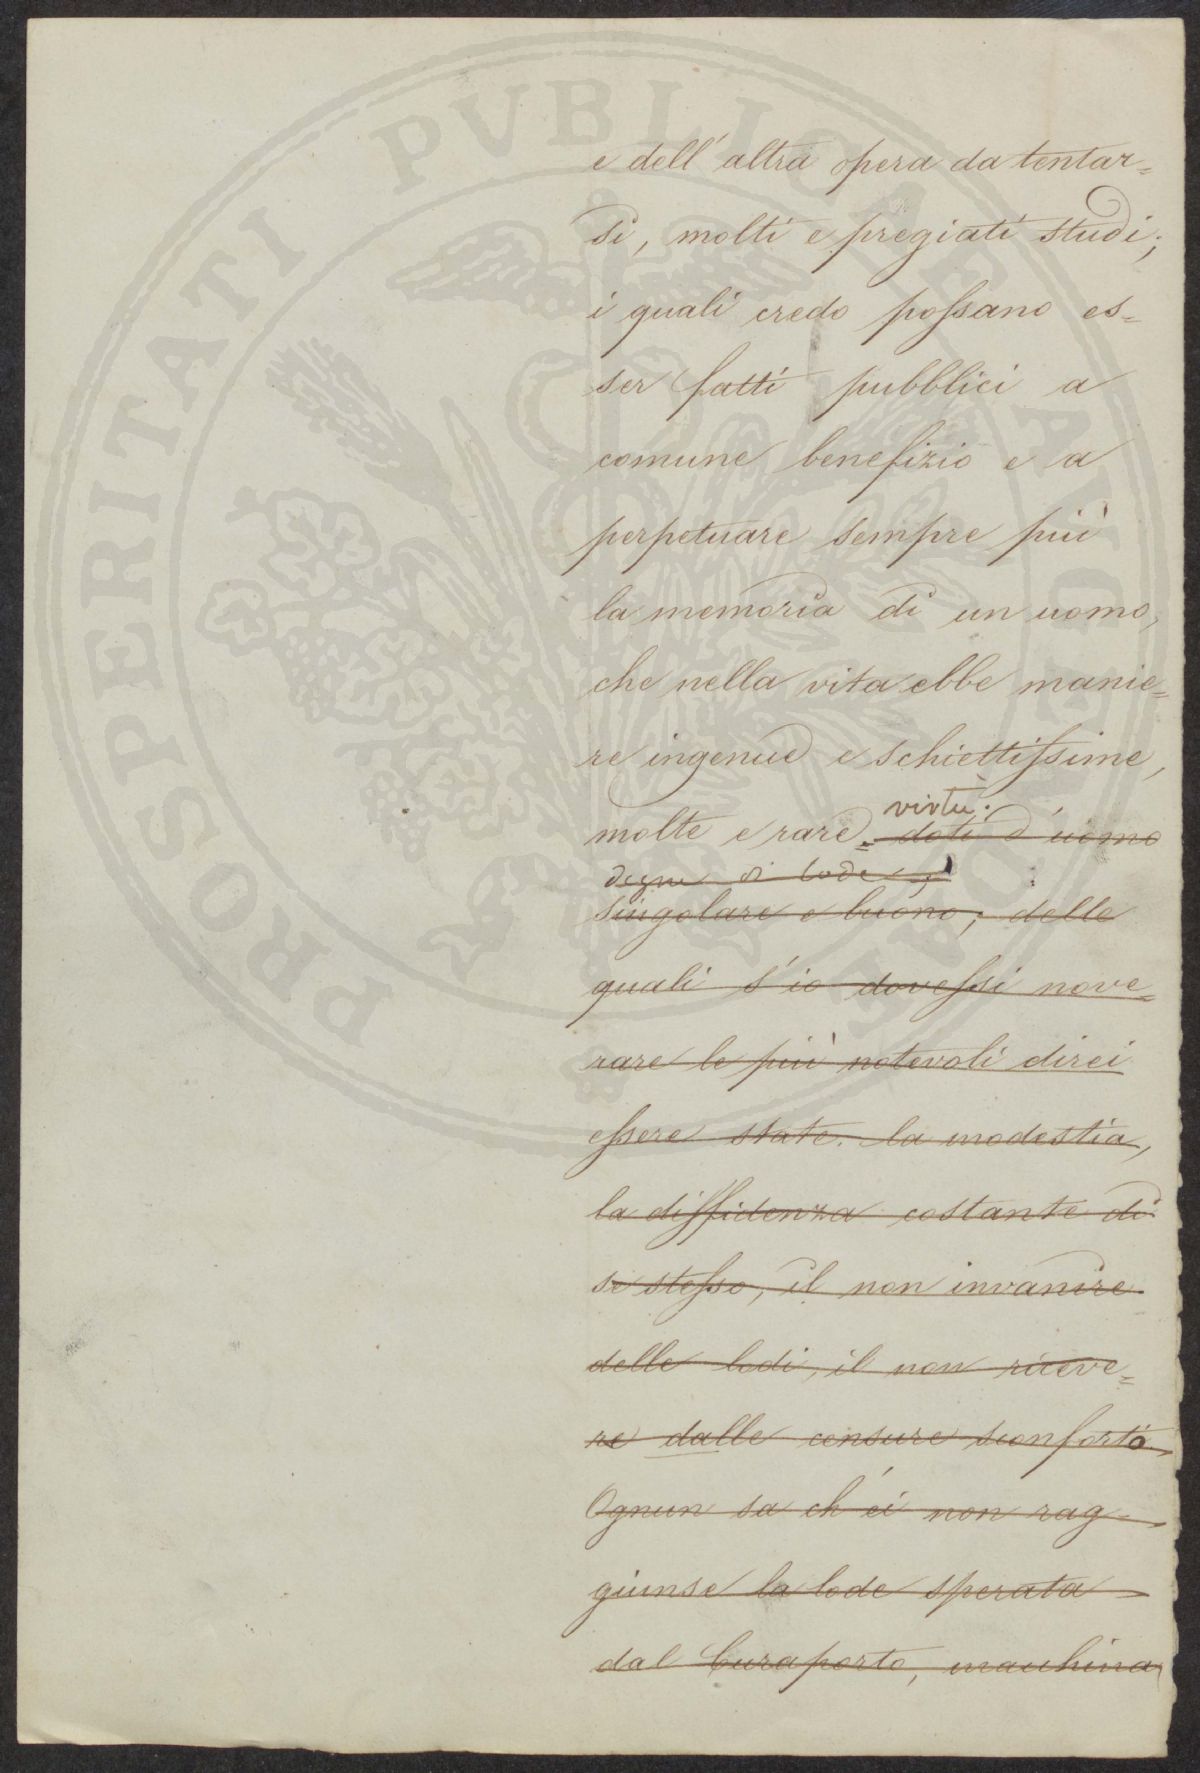 PROSPERITATI PVBLICAE AVGENDAE
e dell'altra opera da tentar=
si, molti e pregiati studi;
i quali credo possano es=
ser fatti pubblici a
comune benefizio e a
perpetuare sempre più
la memoria di un uomo,
che nella vita ebbe manie=
re ingenue e schiettissime,
virtù.
molte e rare doti d'uomo
degne di lode,
singolare e buono; delle
quali s'io dovessi nove=
rare le più notevoli direi
essere state la modestia,
la diffidenza costante di
se stesso, il non invanire
delle lodi, il non riceve=
re dalle censure sconforto
Ognun sa ch'ei non rag=
giunse la lode sperata
dal Curaporto, macchina